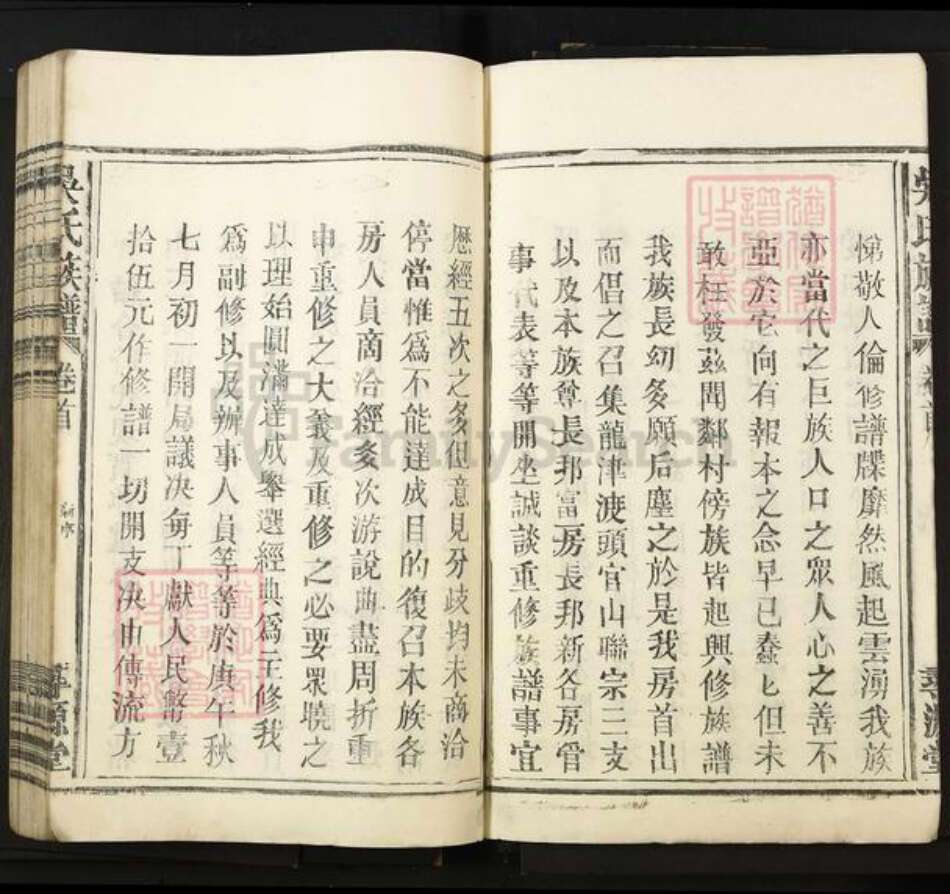 悌敬人倫修譜牒靡然風起雲湧我族
亦當代之巨族人口之眾人心之善不
亞於它向有報本之念早已蠢匕但未
敢枉發茲聞鄰村傍族皆起興修族譜
我族長幼多願后塵之於是我房首出
而倡之召集龍津渡頭官山聯宗三支
以及本族尊長邦富房長邦新各房管
事代表等等開坐誠談重修族譜事宜
歷經五次之多但意見分歧均未商洽
停當惟爲不能達成目的復召本族各
房人員商洽經多次游說典盡周折重
申重修之大義及重修之必要眾曉之
以理始圓滿達成舉選經典爲主修我
爲副修以及辦事人員等等於庚午秋
七月初一開局議决每丁獻人民幣壹
拾伍元作修譜一切開支决由傳流方
吳氏族譜 卷首 尋源堂
吳氏族譜 卷首 尋源堂
FamilySearch